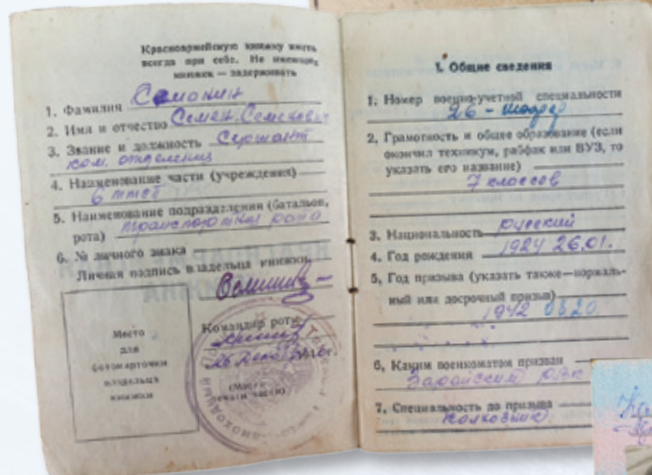 Красноармейскую книжку иметь
всегда при себе. Не имеющих
книжек — задерживать
1. Фамилия Самонин
2. Имя и отчество Семен Семенович
3. Звание и должность Сержант
ком. отделения
4. Наименование части (учреждения)
5. Наименование подразделения (батальон,
рота) транспортная рота
6. № личного знака
Личная подпись владельца книжки
Место
для
фотокарточки
владельца
книжки
Командир роты
1. Общие сведения
1. Номер военно-учетной специальности
26 -
2. Грамотность и общее образование (если
окончил техникум, рабфак или ВУЗ, то
указать его название)
7 классов
3. Национальность русский
4. Год рождения 1924 26.01.
5. Год призыва (указать также—нормаль-
ный или досрочный призыв)
1942 08.20
6. Каким военкоматом призван
Зарайским РВК
7. Специальность до призыва
колхозник